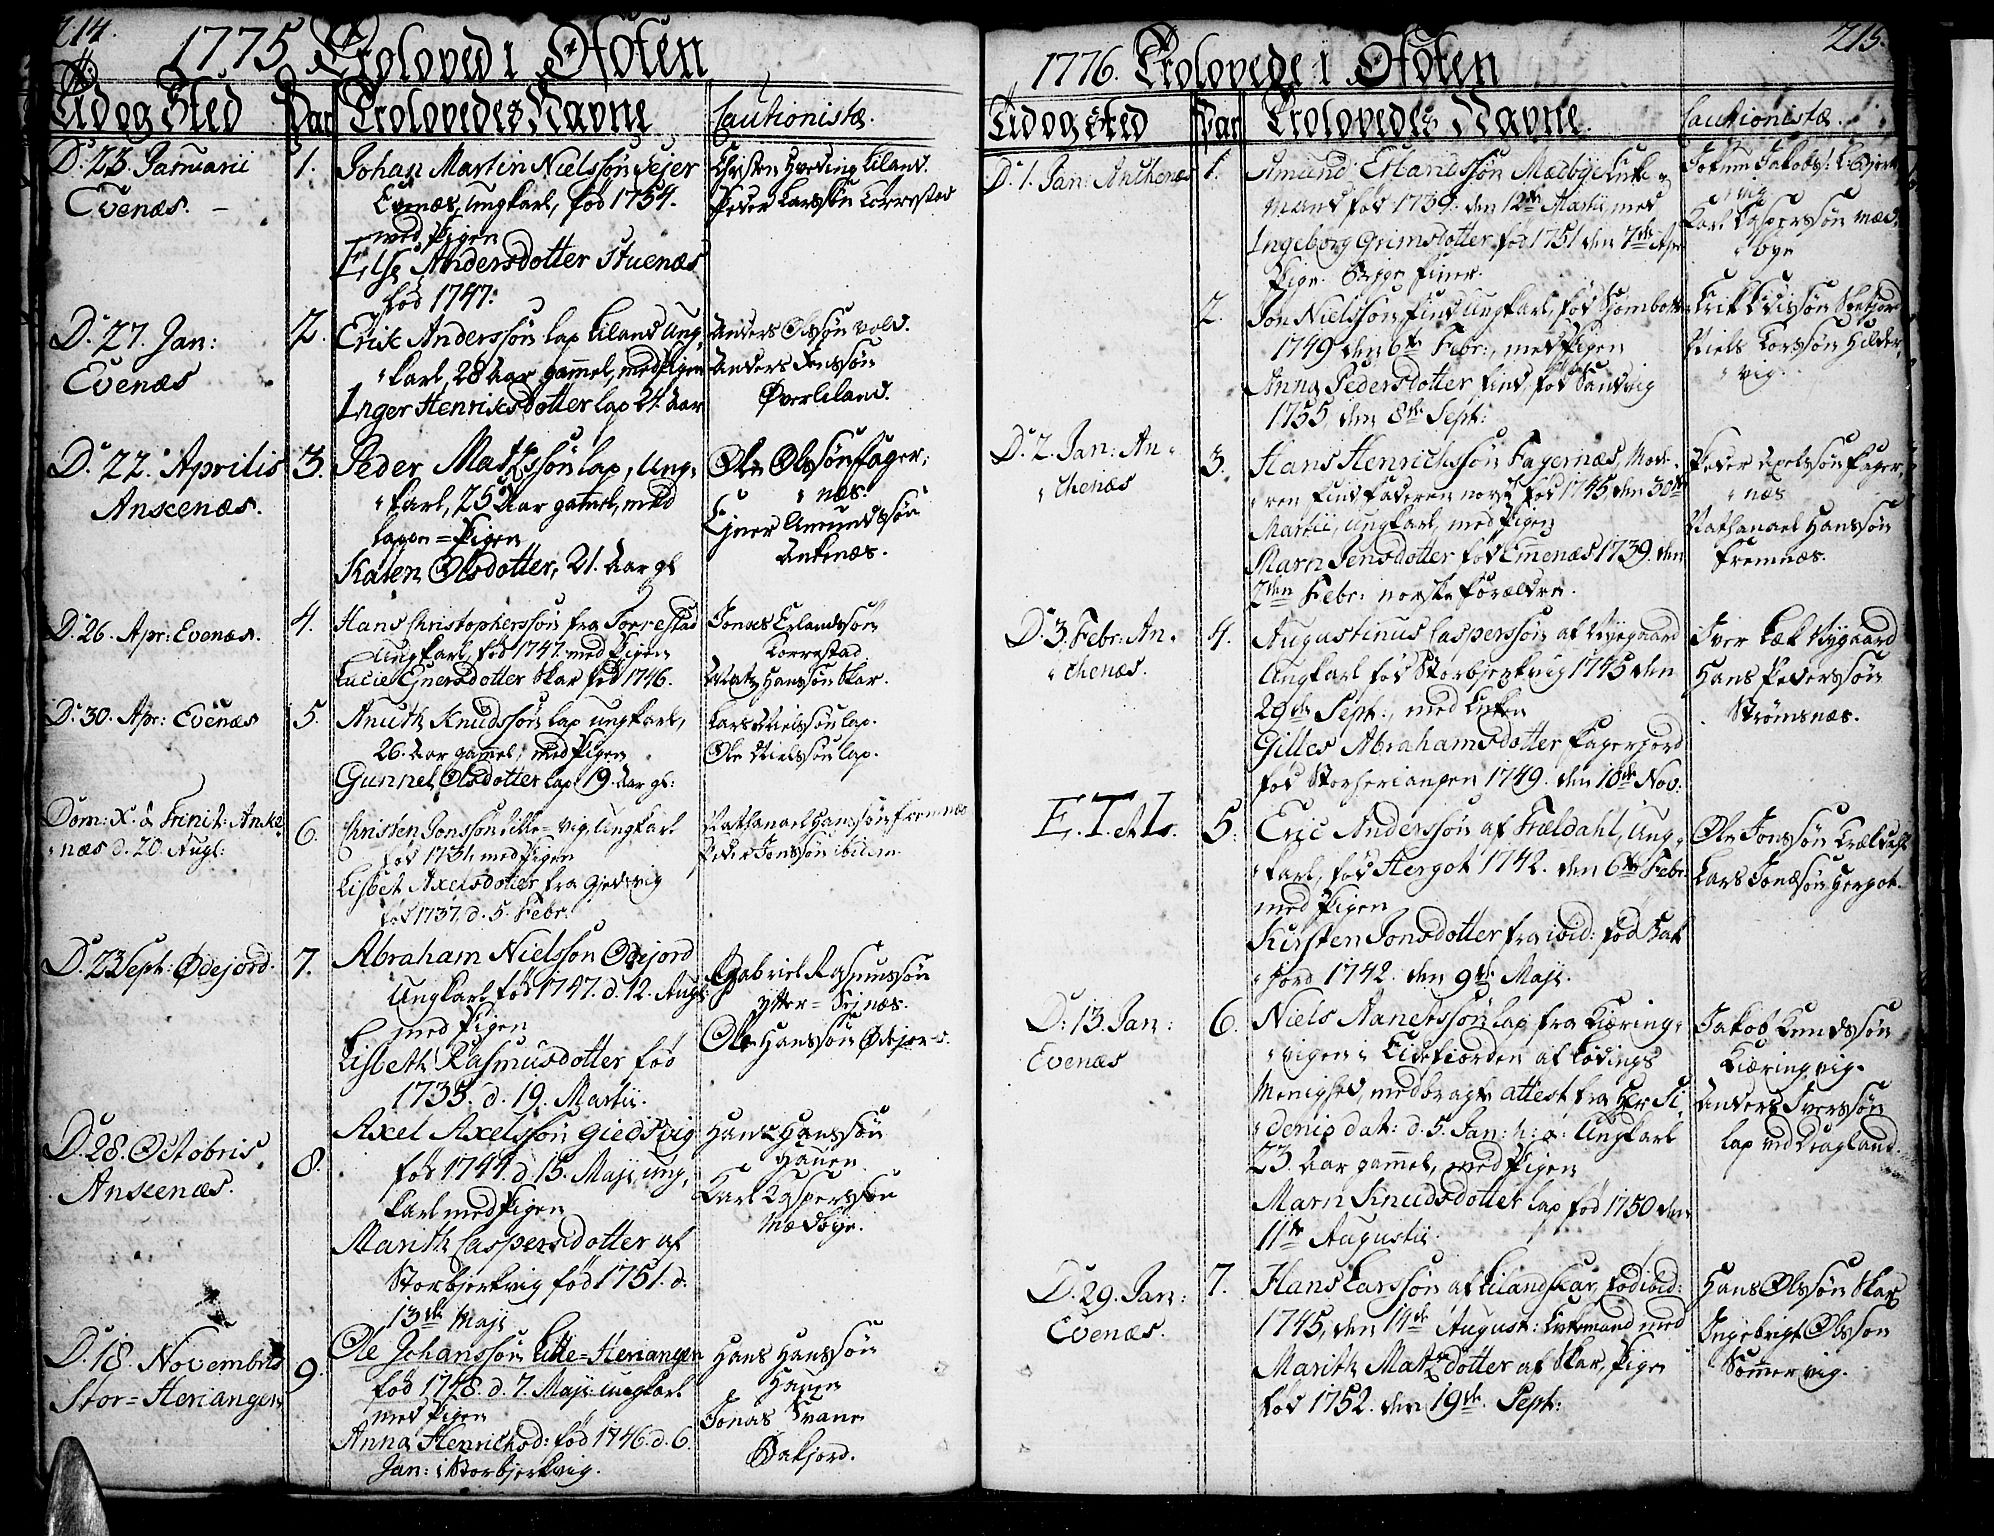 214.
1775 Troloved i Ofoten
Tid og Sted
Par
Trolovedes Navne
Cautionistæ.
D. 23. Januarii
Evenæs.
1.
Johan Martin Nielssøn Sejer
Evenæs, Ungkarl, fød 1754.
med Pigen
Else Andersdotter Stuenæs
fød 1747.
Christen Hveding Liland.
Peder Larssøn Torrestad
D. 27. Jan:
Evenæs
2.
Erik Anderssøn lap Liland Ung-
karl, 28 Aar gammel, med Pigen
Inger Henriksdotter lap 24. Aar
Anders Olssøn Vold.
Anders Jenssøn
Øverliland.
D. 22. Aprilis
Ankenæs.
3.
Peder Matzssøn lap, Ung-
karl, 25 Aar gamel, med
lappe-Pigen
Karen Olsdotter, 21. Aar gl
Ole Olssøn Fager-
næs.
Ejner Amundssøn
Ankenæs.
D. 26. Apr: Evenæs.
4.
Hans Christopherssøn fra Torrestad
Ungkarl, fød 1747. med Pigen
Lucie Ejnersdotter Skar fød 1746.
Jonas Erlandssøn
Torrestad
Matz Hanssøn Skar.
D. 30. Apr: Evenæs
5.
Anuth Knudssøn lap ungkarl,
26 Aar gammel, med Pigen
Gunnel Olsdotter lap 19. Aar gl:
Lars Nielssøn lap.
Ole Nielssøn lap.
Dom: X. à Trinit: Anke-
næs d. 20. Augl:
6.
Christen Jonssøn Lille-vig, Ungkarl
fød 1731, med Pigen
Lisbet Axelsdotter fra Giedsvig
fød 1737. d. 5. Febr:
Nathanael Hanssøn Fremnæs
Peder Jonssøn ibidem.
D. 23 Sept: Ødejord.
7.
Abraham Nielssøn Ødejord
Ungkarl fød 1747. d. 12. Augl:
med Pigen
Lisbeth Rasmusdotter fød
1735. d. 19. Martii.
Gabriel Rasmussøn
Ytter-Sejnæs.
Ole Hanssøn Ødejord.
D. 28. Octobris
Ankenæs.
8.
Axel Axelssøn Giedsvig
fød 1744 d. 15. Maji, ung-
karl med Pigen
Marith Caspersdotter af
Storbjerkvig fød 1751. d.
13de Maji
Hans Hanssøn
Haven
Karl Kasperssøn
Mædbye.
D. 18. Novembris
Stor-Heriangen
9.
Ole Johanssøn Litle-Heriangen
fød 1748. d. 7. Maji ungkarl
med Pigen
Anna Henrichsd: fød 1746. d. 6.
Jan: i Storbjerkvig.
Hans Hanssøn
Jonas Svane
Øakjord.
215.
1776. Trolovede i Ofoten
Tid og Sted
Par
Trolovedes Navne.
Cautionistæ.
D. 1. Jan: Anchenæs
1.
Amund Erlandssøn Mædbye Enke-
mand fød 1739. den 12te Martii, med
Ingeborg Grimsdotter fød 1751 den 7de Apr
Pige. Begge Finer.
Karl Kasperssøn Mæd-
bye
2.
Jon Nielssøn, find Ungkarl, fød
1749 den 6te Febr:, med Pigen
Anna Pedersdotter, find, fød Sandvig
1755, den 8de Sept:
Niels Larssøn Hilder-
vig.
D. 2. Jan: An-
chenæs
3.
Hans Henrichssøn Fagernæs, Mode-
ren find Faderen norsk fød 1745 den 30te
Martii, Ungkarl, med Pigen
Marn Jensdotter fød Emenæs 1739. den
7den Febr: norske Forældre.
Peder Axelssøn Fager-
næs
Nathanael Hanssøn
Fremnæs.
D. 3. Febr: An-
chenæs.
4.
Augustinus Casperssøn af Nyegaard
Ungkarl fød Storbjerkvig 1745 den
29de Sept:, med Enken
Gilles Abrahamsdotter Fagerjord
fød Storheriangen 1749. den 18de Nov:
Iver Bæk Nygaard
Hans Pederssøn
Strømsnæs.
E. T. et L.
5.
Eric Anderssøn af Trældahl, Ung-
karl, fød Hergot 1742. den 6te Febr:
med Pigen
Kirsten Jonsdotter fra ibid: fød Bak
jord 1742. den 9de Maji.
Ole Jonssøn Trældahl
Lars Jonæssøn Hergot.
D. 13. Jan:
Evenæs
6.
Niels Nanerssøn lap fra Kiæring-
vigen i Eidefiorden af Lødings
Menighed, medbragte attest fra Her Si-
denip dat: d. 5 Jan: h: a: Ungkarl
23. Aar gammel, med Pigen
Marn Knudsdotter lap fød 1750 den
11te Augustii.
Jakob Knudssøn
Kiæringvig.
Anders Iverssøn
lap ved Diagland.
D. 29. Jan:
Evenæs.
7.
Hans Larssøn af Liland Skar, fød ibid:
1745, den 14de August: Enkemand med
Marith Matzdotter af Skar, Pige
fød 1752. den 19de Sept:
Hans Olssøn Skar
Ingebrigt Olssøn
Sommervig.